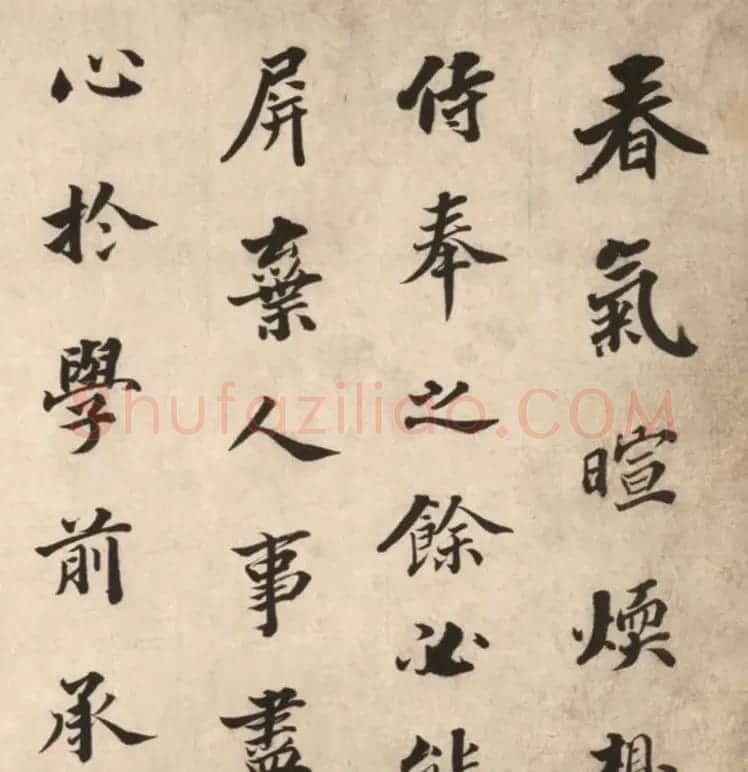 春氣暄煗想
侍奉之餘必能
屏棄人事盡
心於學前承
Shufaziliao.COM